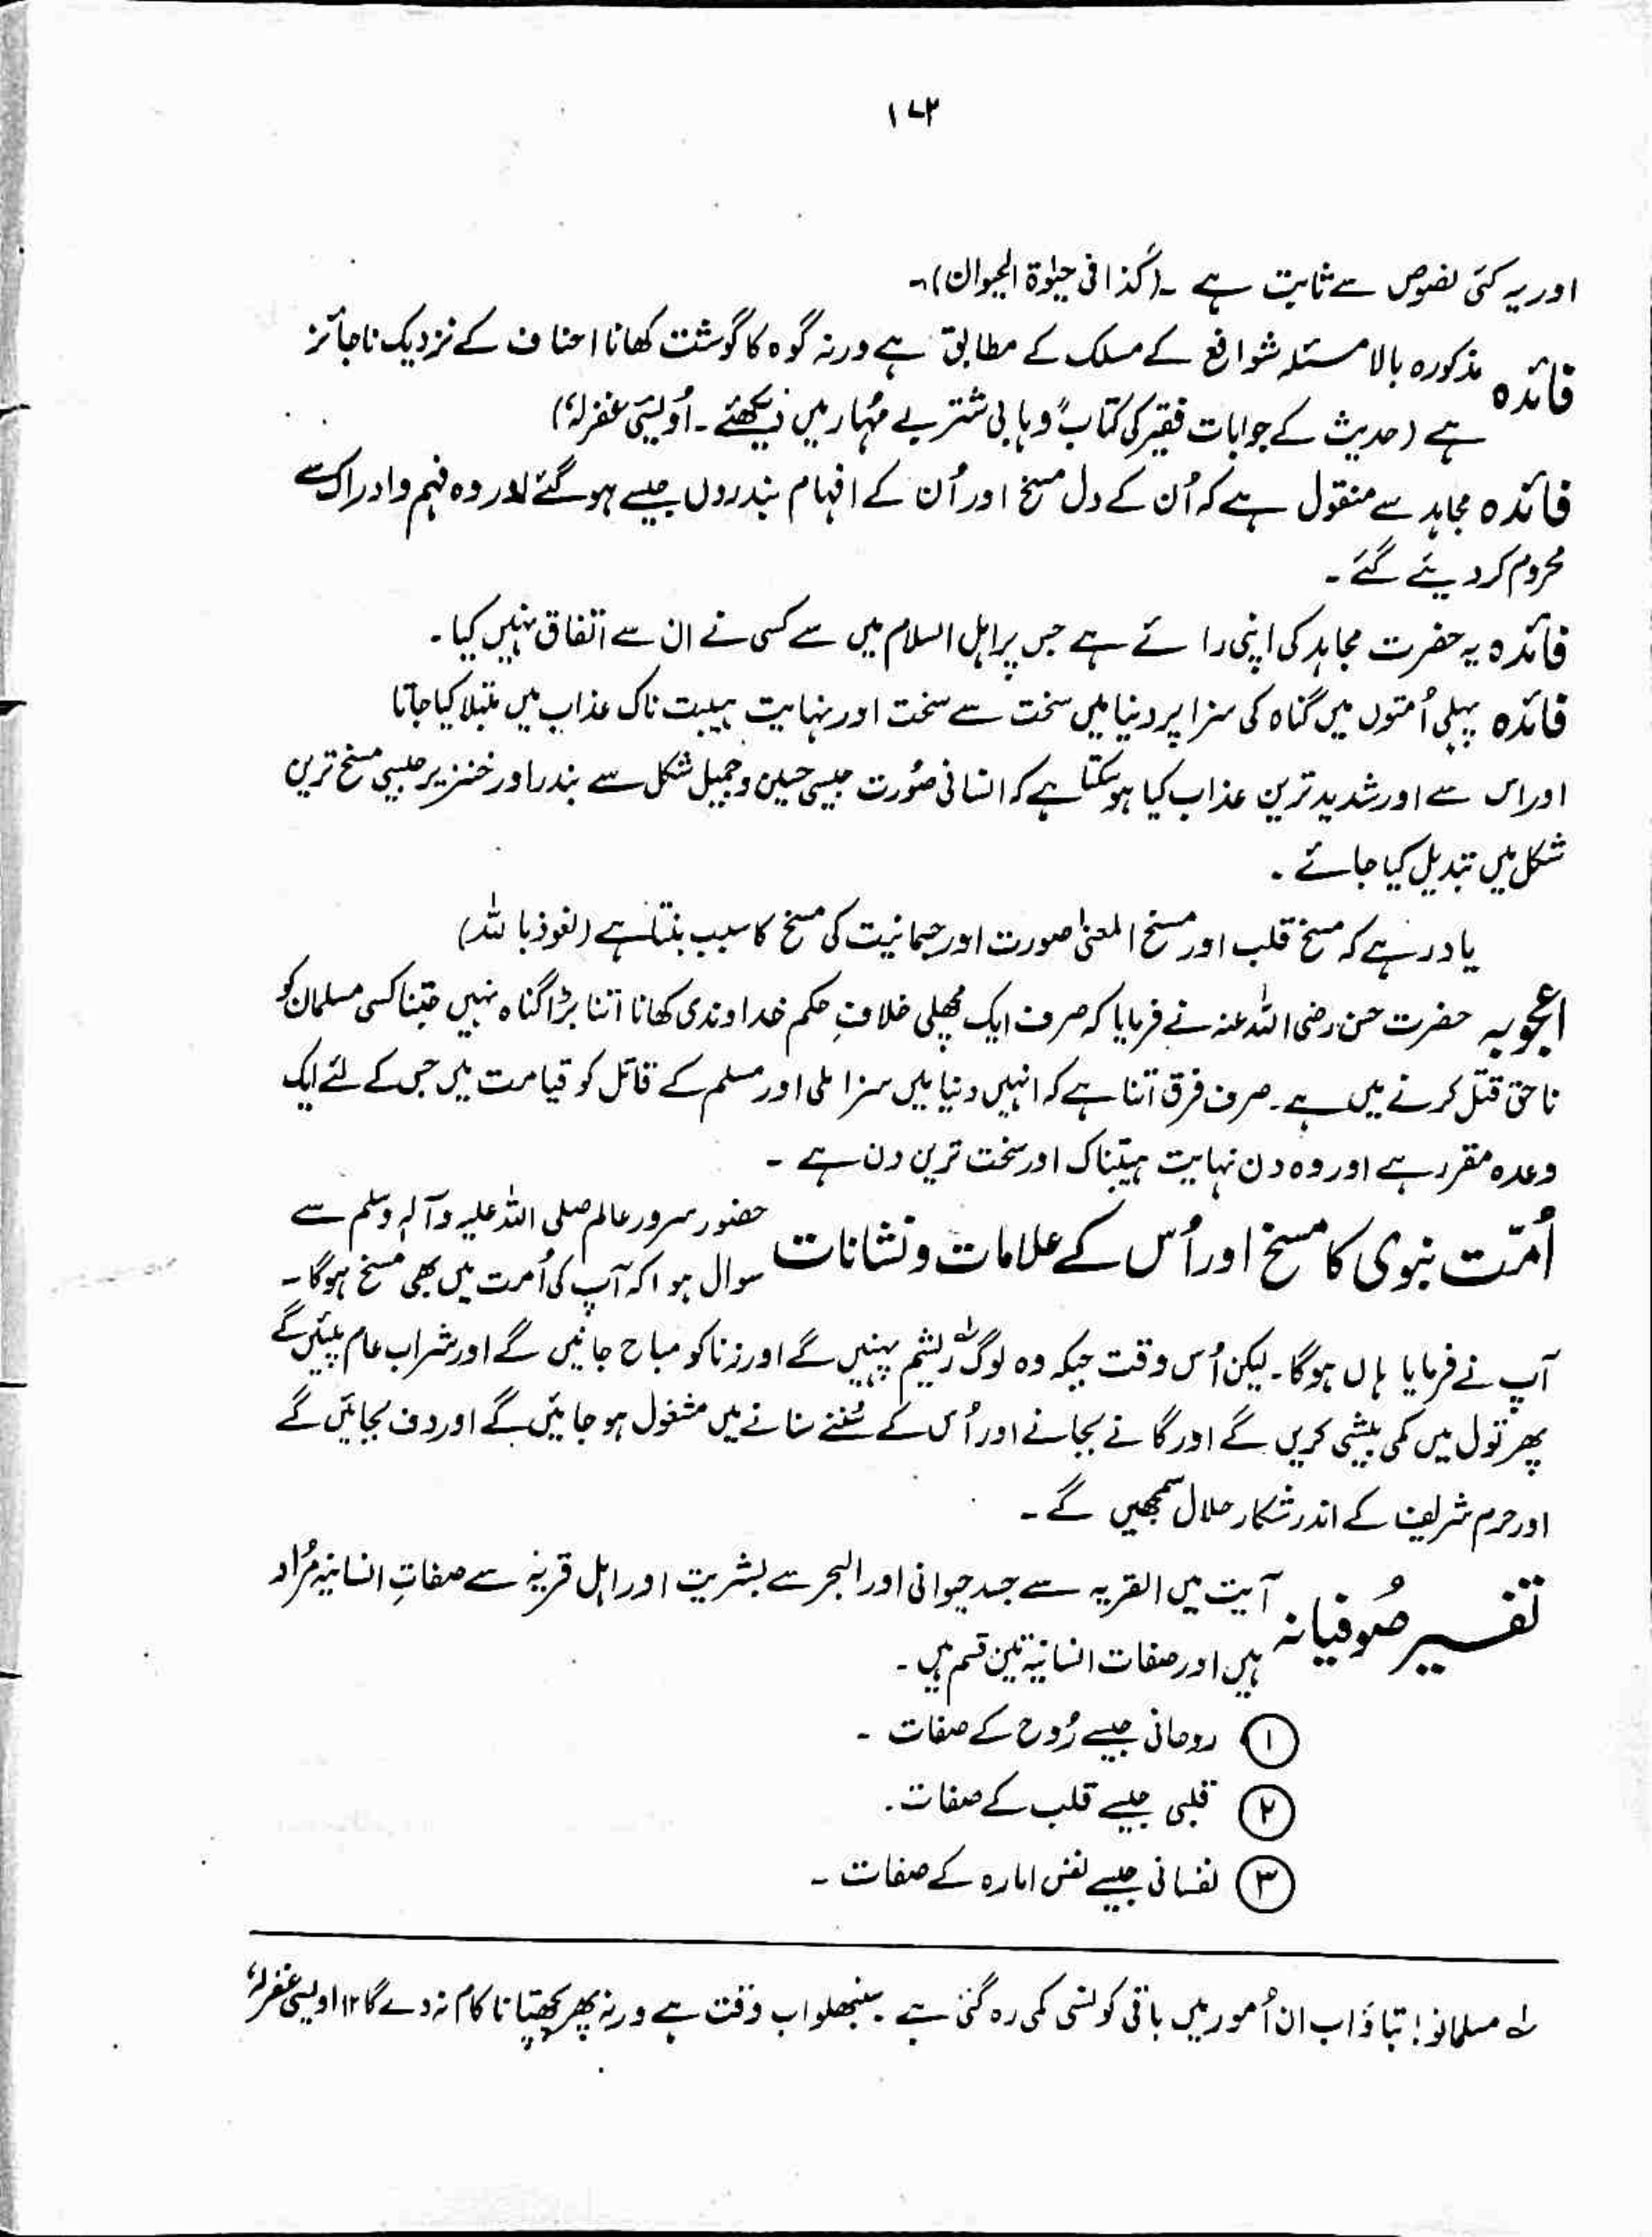 ۱۷۲
اور یہ کئی نصوص سے ثابت ہے ۔ (کذا فی حیٰوۃ الحیوان)۔
فائدہ مذکورہ بالا مسئلہ شوافع کے مسلک کے مطابق ہے ورنہ گوہ کا گوشت کھانا احناف کے نزدیک ناجائز
ہے (حدیث کے جوابات فقیر کی کتاب "وہابی شتر بے مُہار میں دیکھئے ۔ اُویسی غفرلہٗ)
فائدہ مجاہد سے منقول ہے کہ اُن کے دل مسخ اور اُن کے افہام بندروں جیسے ہوگئے اور وہ فہم و ادراک سے
محروم کر دیئے گئے ۔
فائدہ یہ حضرت مجاہد کی اپنی رائے ہے جس پر اہل اسلام میں سے کسی نے ان سے اتفاق نہیں کیا ۔
فائدہ پہلی اُمتوں میں گناہ کی سزا پر دنیا میں سخت سے سخت اور نہایت ہیبت ناک عذاب میں مبتلا کیا جاتا
اور اس سے اور شدید ترین عذاب کیا ہوسکتا ہے کہ انسانی صُورت جیسی حسین و جمیل شکل سے بندر اور خنزیر جیسی مسخ ترین
شکل میں تبدیل کیا جائے ۔
یاد رہے کہ مسخ قلب اور مسخ المعنیٰ صورت اور جسمانیت کی مسخ کا سبب بنتا ہے (نعوذ باللہ)
اعجوبہ حضرت حسن رضی اللہ عنہ نے فرمایا کہ صرف ایک مچھلی خلافِ حکم خداوندی کھانا اتنا بڑا گناہ نہیں جتنا کسی مسلمان کو
ناحق قتل کرنے میں ہے ۔ صرف فرق اتنا ہے کہ انہیں دنیا میں سزا ملی اور مسلم کے قاتل کو قیامت میں جس کے لئے ایک
وعدہ مقرر ہے اور وہ دن نہایت ہیبتناک اور سخت ترین دن ہے ۔
اُمّت نبوی کا مسخ اور اُس کے علامات و نشانات حضور سرور عالم صلی اللہ علیہ وآلہ وسلم سے
سوال ہوا کہ آپ کی اُمت میں بھی مسخ ہوگا ۔
آپ نے فرمایا ہاں ہوگا ۔ لیکن اُس وقت جبکہ وہ لوگ لہ ریشم پہنیں گے اور زنا کو مباح جانیں گے اور شراب عام پئیں گے
پھر تول میں کمی بیشی کریں گے اور گانے بجانے اور اُس کے سُننے سنانے میں مشغول ہو جائیں گے اور دف بجائیں گے
اور حرم شریف کے اندر شکار حلال سمجھیں گے ۔
تفسیر صُوفیانہ آیت میں القریہ سے جسد حیوانی اور البحر سے بشریت اور اہل قریہ سے صفاتِ انسانیہ مُراد
ہیں اور صفات انسانیہ تین قسم ہیں ۔
۱ روحانی جیسے رُوح کے صفات ۔
۲ قلبی جیسے قلب کے صفات ۔
۳ نفسانی جیسے نفس امارہ کے صفات ۔
لہ مسلمانو! بتاؤ اب ان اُمور میں باقی کونسی کمی رہ گئی ہے ۔ سنبھلو اب وقت ہے ورنہ پھر پچھتانا کام نہ دے گا ۱۲ اویسی غفرلہٗ